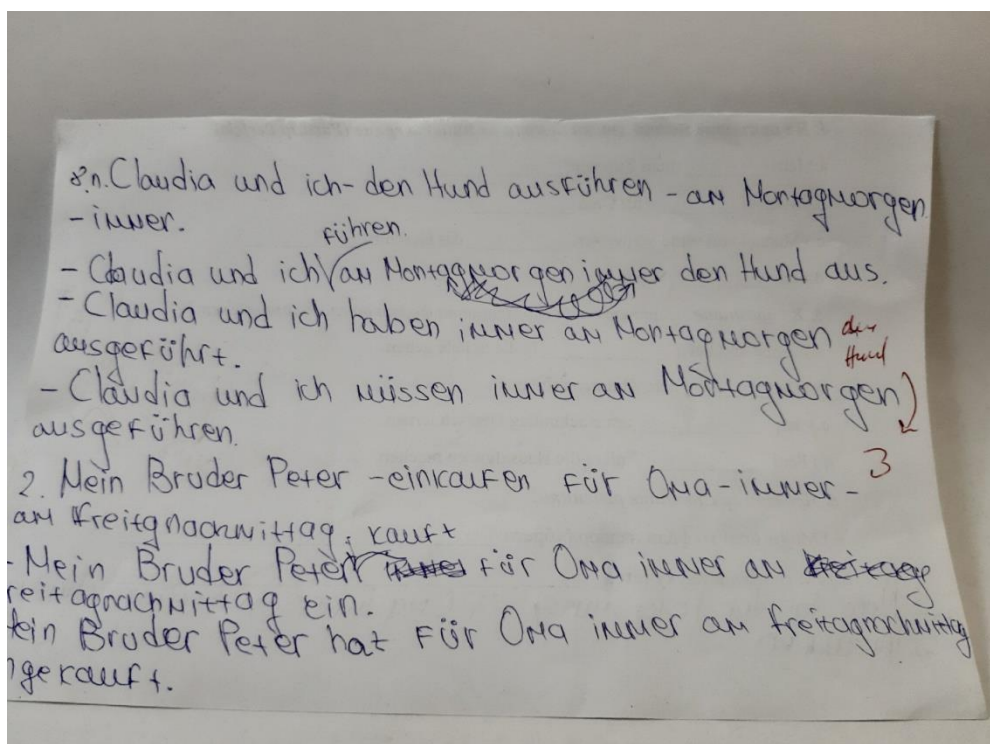 8.n. Claudia und ich - den Hund ausführen - am Montagmorgen
- immer.
führen.
- Claudia und ich am Montagmorgen immer den Hund aus.
- Claudia und ich haben immer am Montagmorgen den
Hund
ausgeführt.
- Claudia und ich müssen immer am Montagmorgen
ausgeführen.
3
2. Mein Bruder Peter - einkaufen für Oma - immer -
am Freitgnachmittag. kauft
- Mein Bruder Peter für Oma immer am
reitagnachmittag ein.
ein Bruder Peter hat für Oma immer am Freitagnachmittag
ngekauft.